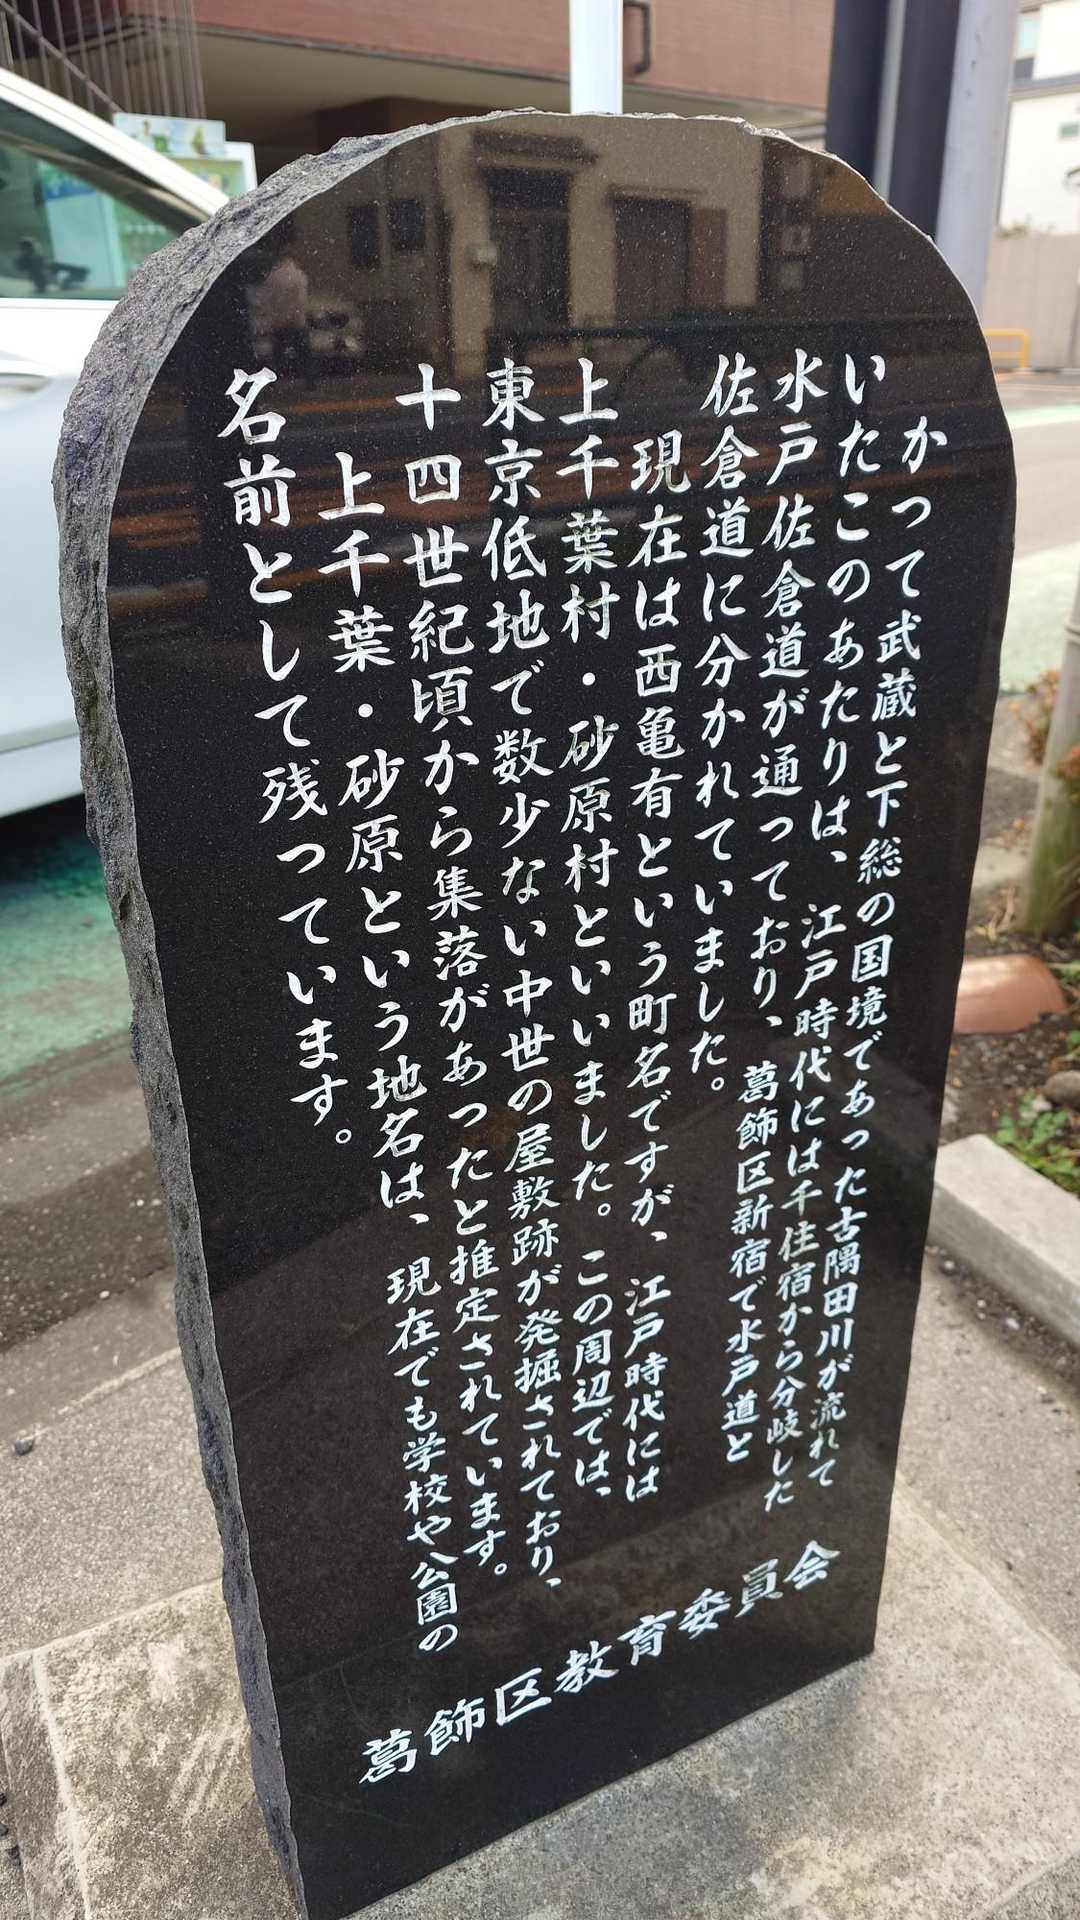 かつて武蔵と下総の国境であった古隅田川が流れて
いたこのあたりは、江戸時代には千住宿から分岐した
水戸佐倉道が通っており、葛飾区新宿で水戸道と
佐倉道に分かれていました。
現在は西亀有という町名ですが、江戸時代には
上千葉村・砂原村といいました。この周辺では、
東京低地で数少ない中世の屋敷跡が発掘されており、
十四世紀頃から集落があったと推定されています。
上千葉・砂原という地名は、現在でも学校や公園の
名前として残っています。
葛飾区教育委員会